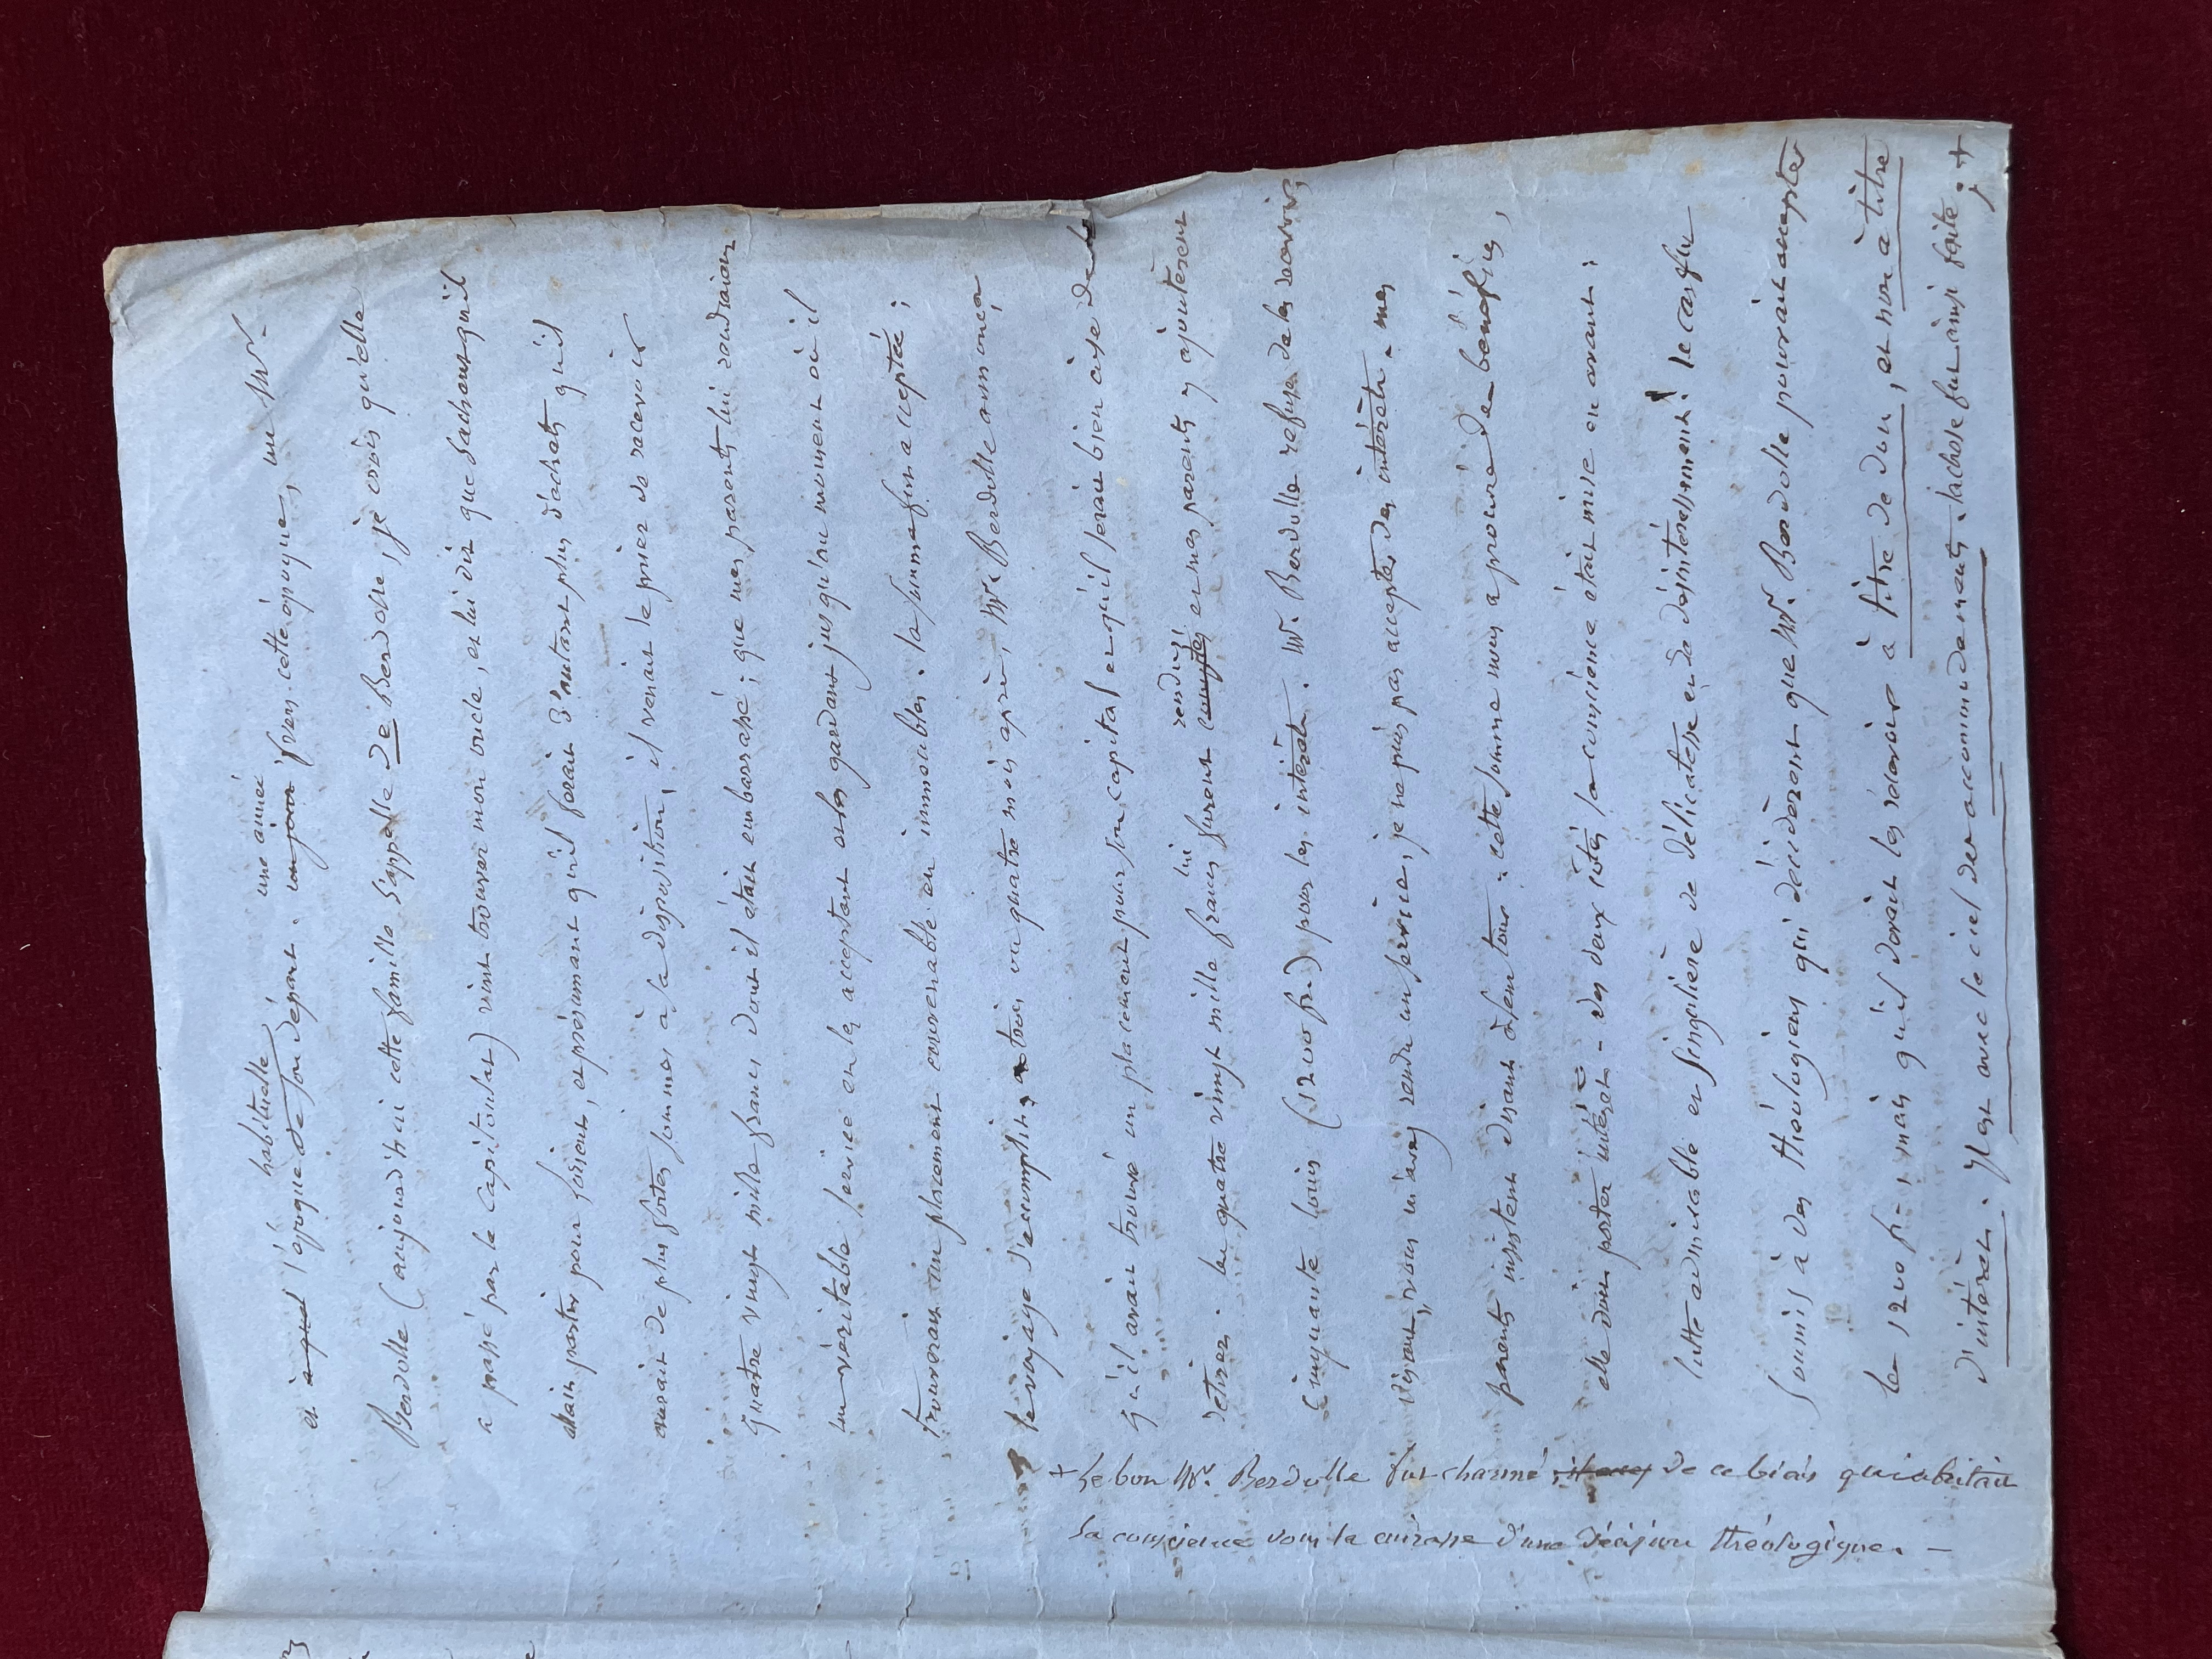 habituelle une année
et à quel l'époque de son départ. un jour vers cette époque, un Mr.
Berdolle (aujourd'hui cette famille s'appelle De Berdolle, je crois qu'elle
a passé par le Capitoulat) vint trouver mon oncle, et lui dit que sachant qu'il
allait partir pour Lorient, et présumant qu'il ferait d'autant plus d'achats qu'il
aurait de plus fortes sommes à sa disposition, il venait le prier de recevoir
quatre vingt mille francs dont il était embarrassé ; que mes parents lui rendraient
un véritable service en les acceptant et les gardant jusqu'au moment où il
trouverait un placement convenable en immeubles. la somme fut acceptée ;
le voyage s'accomplit, et trois ou quatre mois après, Mr. Berdolle annonça
qu'il avait trouvé un placement pour son capital et qu'il serait bien aise de le
rendus
retirer. les quatre vingt mille francs lui furent comptés et mes parents y ajoutèrent
cinquante louis (1200 fr.) pour les intérêts. Mr. Berdolle refusa de les recevoir,
disant, vous m'avez rendu un service, je ne puis pas accepter des intérêts. mes
parents insistent disant à leur tour : cette somme nous a procuré des bénéfices,
elle doit porter intérêt - des deux côtés la conscience était mise en avant :
lutte admirable et singulière de délicatesse et de désintéressement ! le cas fut
soumis à des théologiens qui décidèrent que Mr. Berdolle pouvait accepter
les 1200 fr. mais qu'il devait les recevoir à titre de don, et non à titre
d'intérêt. Il est avec le ciel des accommodements. la chose fut ainsi faite ; +
+ Le bon Mr. Berdolle fut charmé de ce biais qui abritait
sa conscience sous la cuirasse d'une décision théologique. -